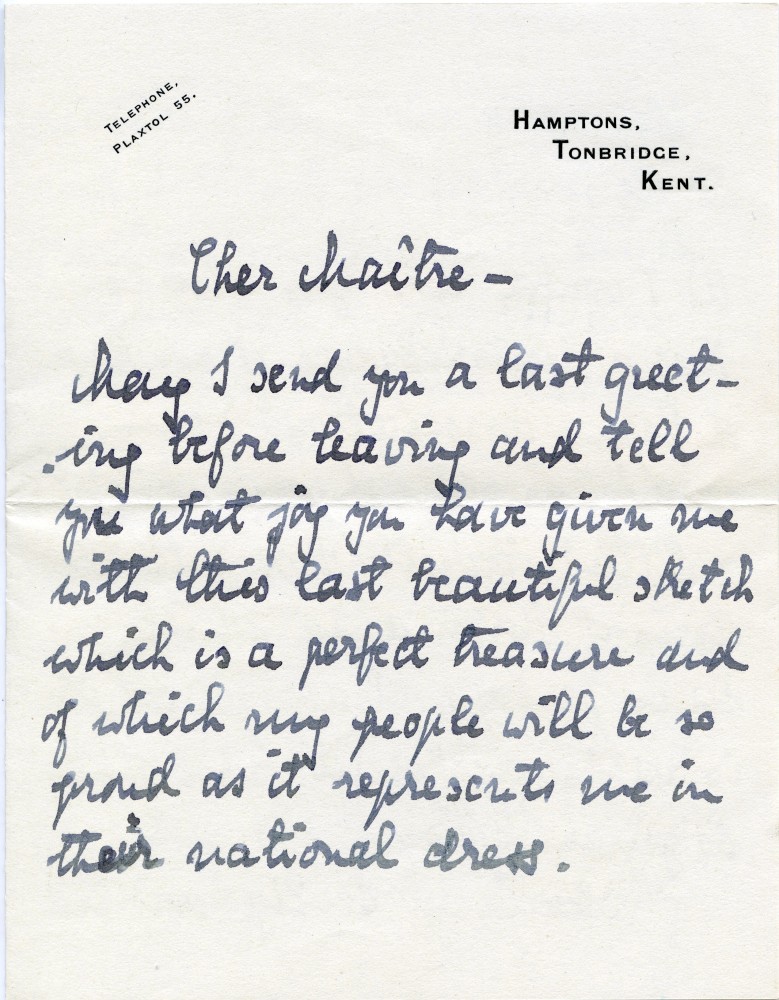 TELEPHONE,
PLAXTOL 55.
HAMPTONS,
TONBRIDGE,
KENT.
Cher Maître –
May I send you a last greet-
.ing before leaving and tell
you what joy you have given me
with this last beautiful sketch
which is a perfect treasure and
of which my people will be so
proud as it represents me in
their national dress.